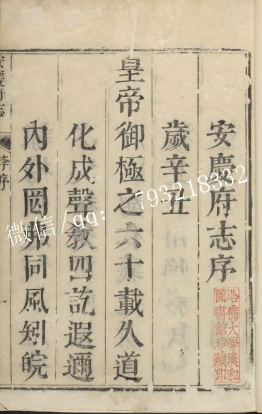 安慶府志序
歲辛丑
皇帝御極之六十載久道
化成聲教四訖遐邇
內外罔弗同風矧皖
安慶府志
李序
微信/qq: 793218332
哈佛大學漢和
圖書館珍藏印